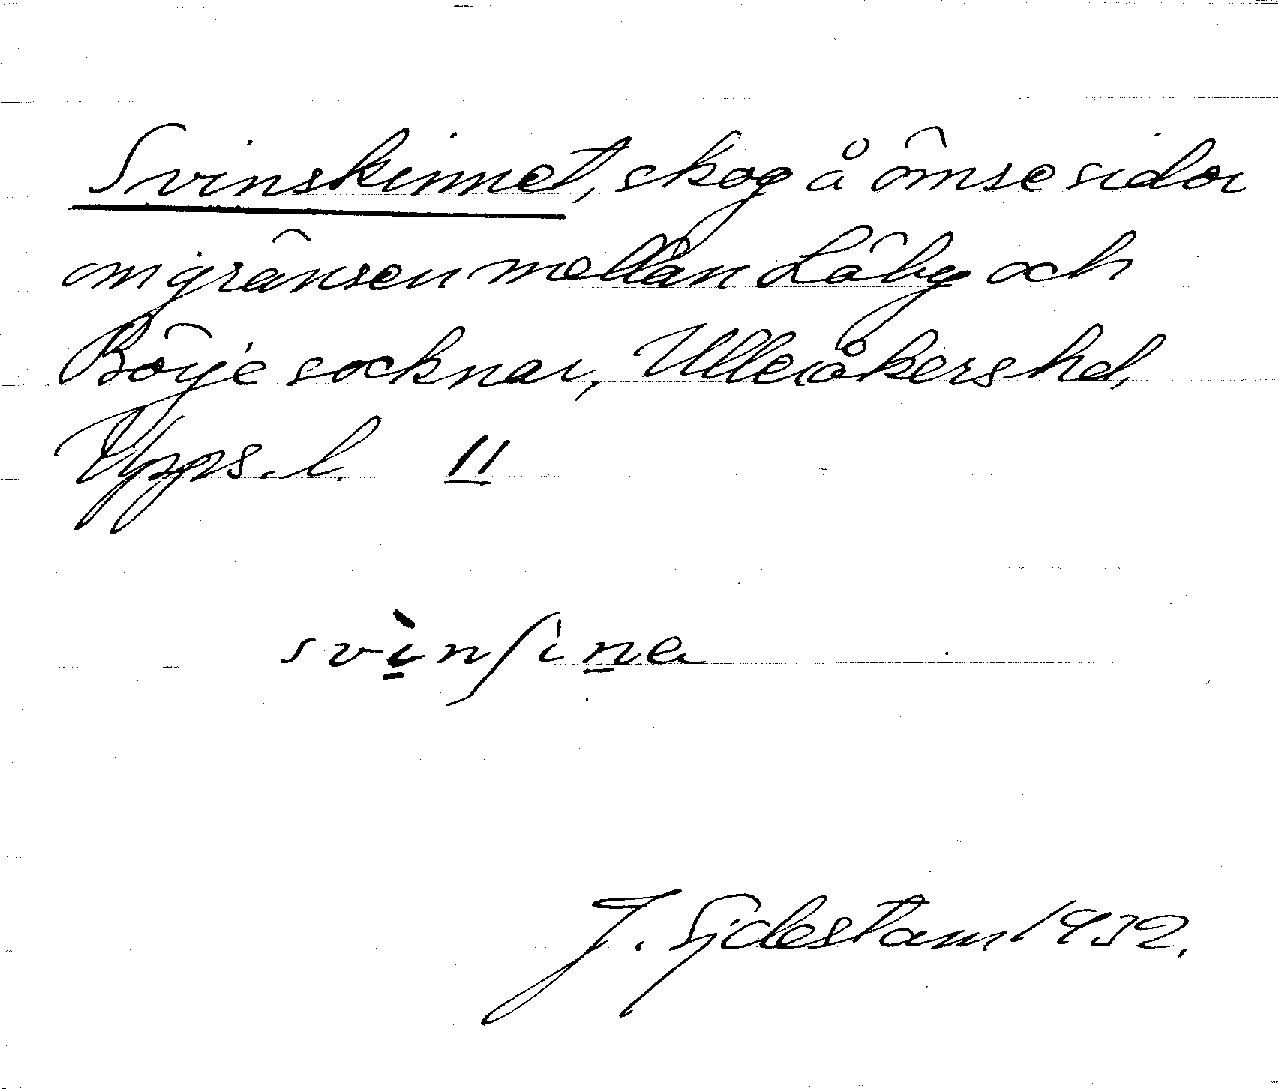 Svinskinnet, skog å ömse sidor
om gränsen mellan Läby och
Börje socknar, Ulleråkers hd,
Upps. l. 11
svìnʃina
J. Sjdestam 1932.